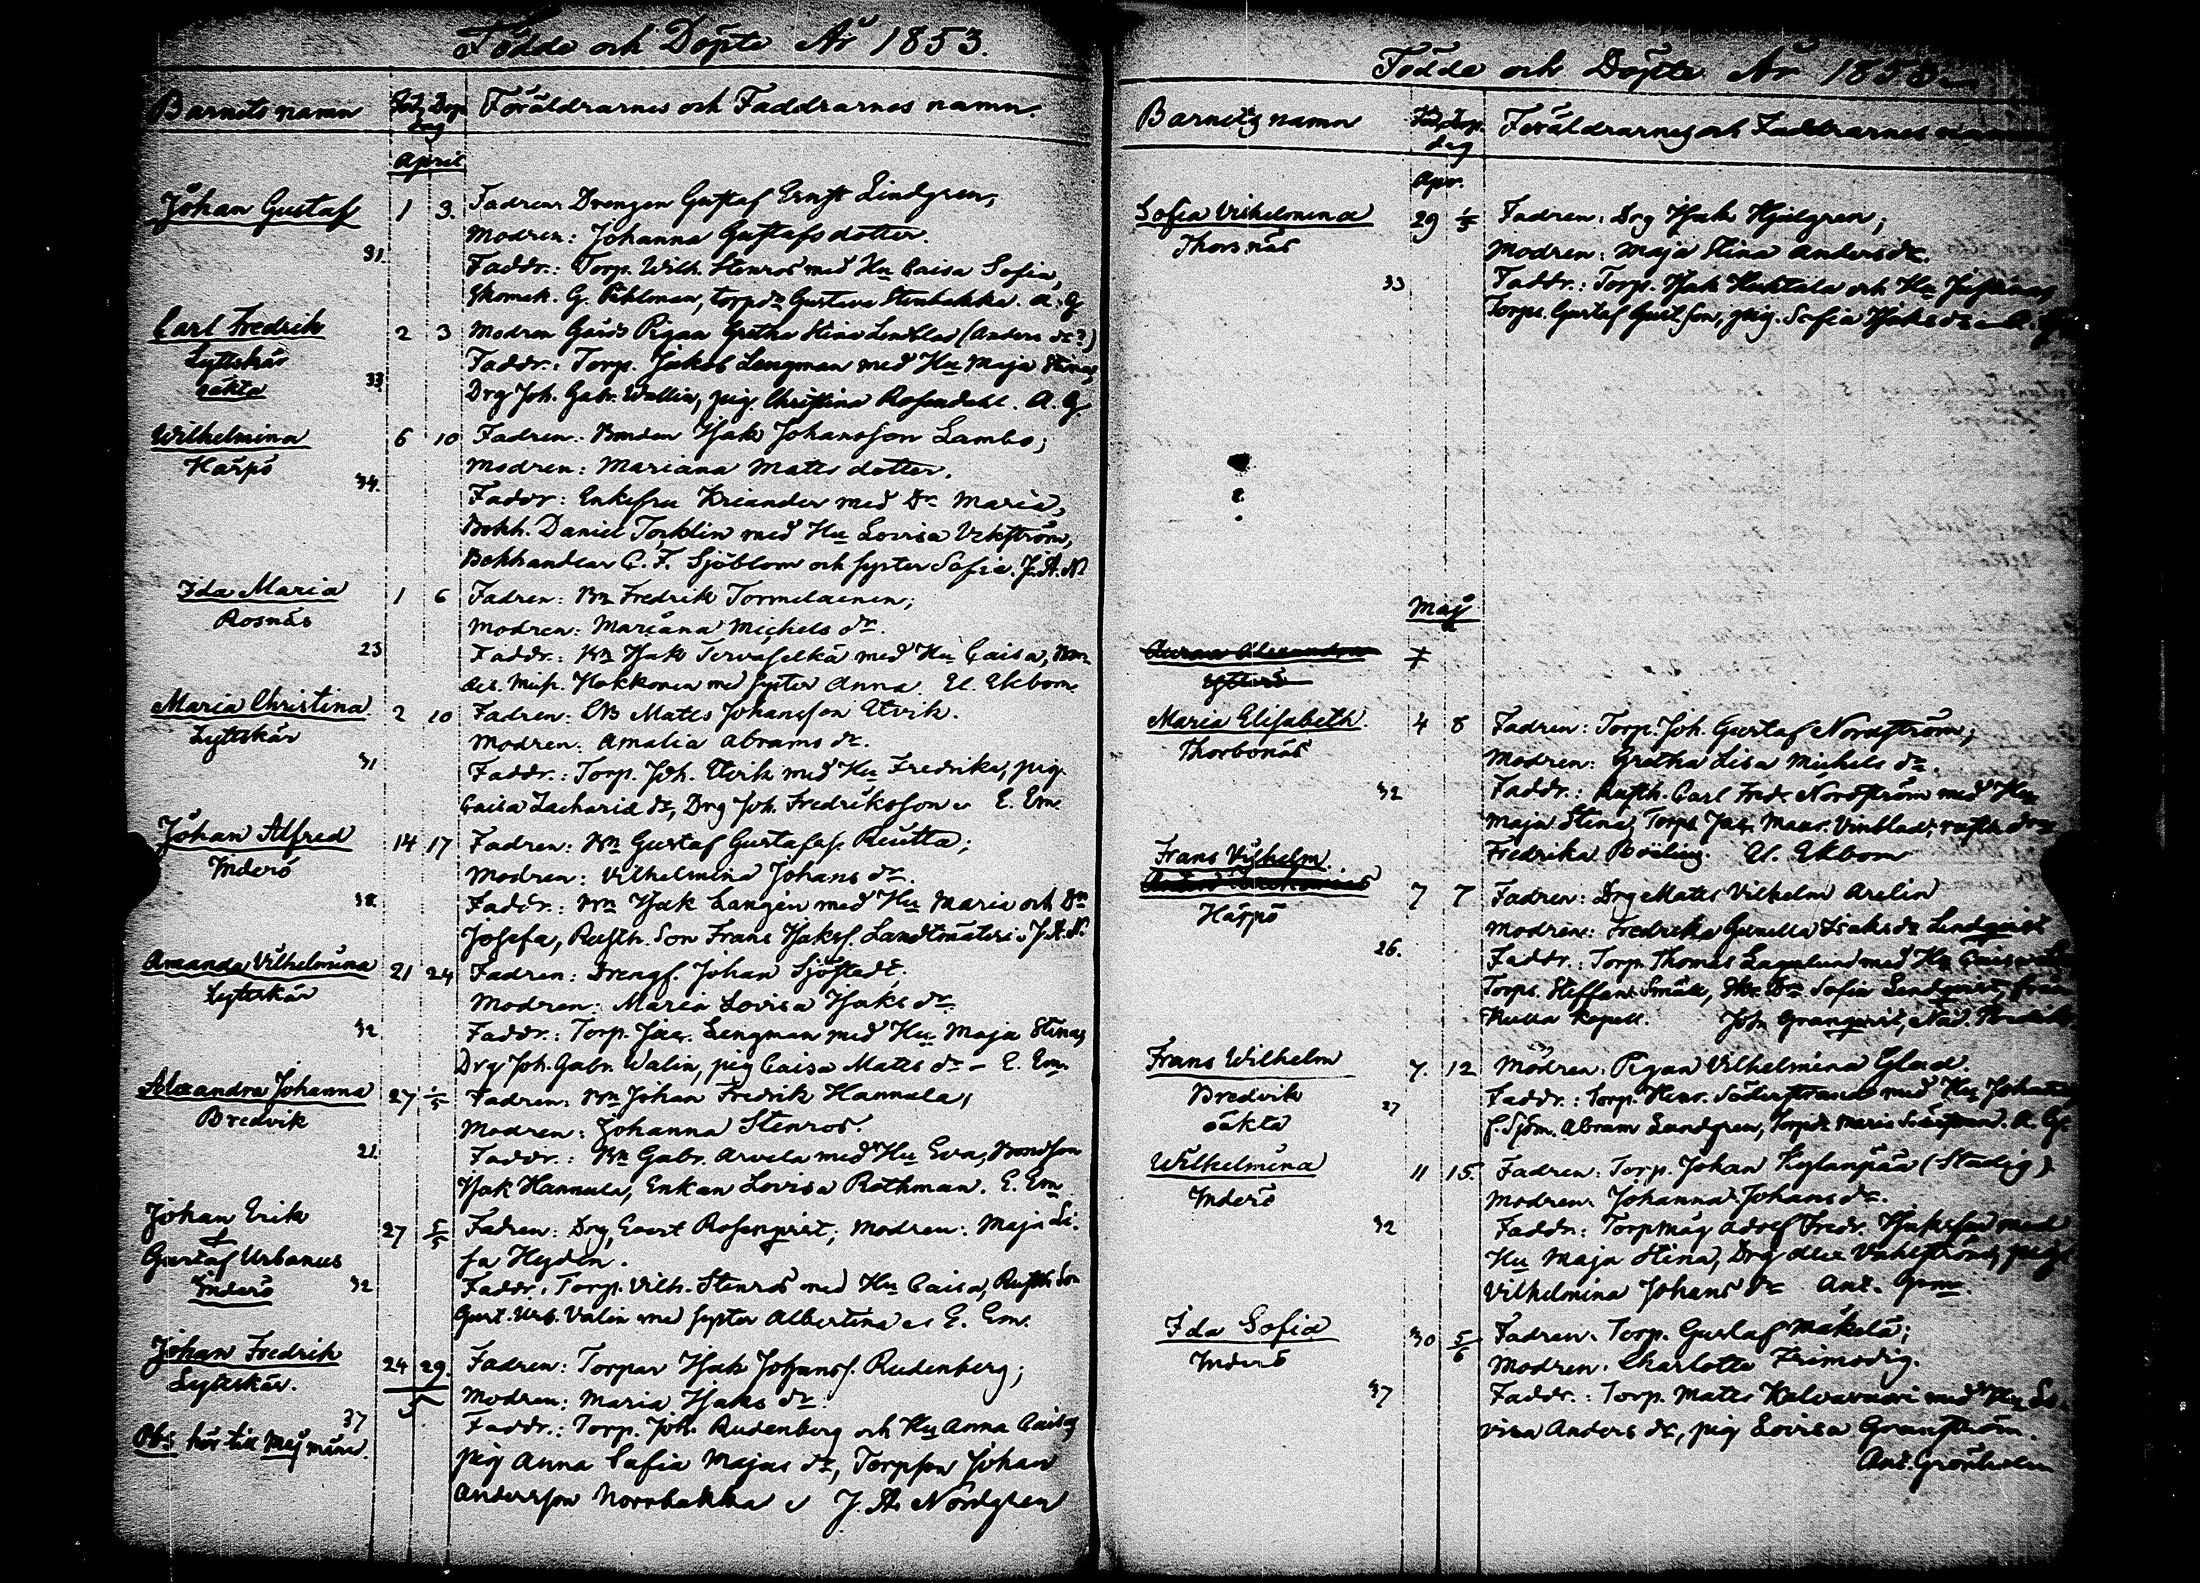 Födde och Döpte År 1853.
Barnets namn Föd. Döp. dag Föräldrarnes och Faddrarnes namn.
April
Johan Gustaf 1 3. Fadren: Drengen Gustaf Ernst Lindgren,
Modren: Johanna Gustafsdotter.
31. Faddr.: Torp. Wilh. Stenros med Hu Caisa Sofia,
Skomak. G. Pihlman, torpdr Gustava Stenbakka. A. G.
Carl Fredrik 2 3 Modren Gårds Pigan Gretha Stina Lindblad (Anders dr?)
Lyttskär Faddr.: Torp. Jakob Lengman med Hu Maja Stina,
oäkta 33. Drg Joh. Gabr. Wallin, pig. Christina Rosendahl. A. G.
Wilhelmina 6 10 Fadren: Bonden Isak Johansson Lambo;
Harpö Modren: Mariana Matts dotter.
34. Faddr: Enkefru Kriander med Dr Maria,
Bokh. Daniel Torklin med Hu Lovisa Vekström,
Bokhandlar C. F. Sjöblom och syster Sofia. J. A. N.
Ida Maria 1 6 Fadren: Bn Fredrik Tormelainen;
Rosnäs Modren: Mariana Michels dr.
23 Faddr.: Bn Isak Tervaselkä med Hu Caisa,
Hakkonen med syster Anna. El. Ekbom
Maria Christina 2 10 Fadren: Matts Johansson Elvik.
Lyttskär Modren: Amalia Abrams dr.
31 Faddr.: Torp. Joh. Elvik med Hu Fredrika, pig.
Caisa Zacharia dr, Drg Joh. Fredriksson E. Em.
Johan Alfred 14 17 Fadren: Bn Gustaf Gustafss. Reutta;
Inderö Modren: Vilhelmina Johans dr.
38 Faddr.: Bn Isak Langen med Hu Maria och Dr
Josefa, Rusth. Son Frans Isakss. Landtmäteri J. A. N.
Amanda Vilhelmina 21 24 Fadren: Drengs. Johan Sjöstedt;
Lyttskär Modren: Maria Lovisa Isaks dr
32 Faddr.: Torp. Jac. Lengman med Hu Maja Stina,
Drg Joh. Gabr. Walin, pig Caisa Matts dr – E. Em.
Alexandra Johanna 27 1/5 Fadren: Bn Johan Fredrik Hannula,
Bredvik Modren: Johanna Stenros.
21 Faddr.: Bn Gabr. Arvela med Hu Eva, Bondson
Isak Hannula, Enkan Lovisa Rothman. E. Em
Johan Erik 27 5/5 Fadren: Drg Evert Rosenqvist, Modren: Maja Li-
Gustaf Urbanus sa Hydén.
Inderö 32 Faddr. Torp. Vilh. Stenros med Hu Caisa, Rusth. Son
Gust. Urb. Valin med syster Albertina E. Em.
Johan Fredrik 24 29. 5 Fadren: Torpar Isak Johanss. Rudenberg;
Lyttskär. Modren: Maria Isaks dr.
37 Faddr.: Torp. Joh. Rudenberg och Hu Anna Caisa,
Obs hör till Maj månd. pig Anna Sofia Majas dr, Torpson Johan
Andersson Norrbakka J. A. Nordgren
Födde och Döpte År 1853
Barnets namn Föd. Döp. dag Föräldrarnes och Faddrarnes namn
Apr.
Sofia Vilhelmina 29 1/5 Fadren: Drg Isak Hjelgren;
Thorsnäs Modren: Maja Stina Anders dr.
33 Faddr.: Torp. Isak Huktala och Hu
Torps. Gustaf Gust.son, pig. Sofia Isaks dr A.
Maj
7
Maria Elisabeth 4 8 Fadren: Torp. Joh. Gustaf Nordström;
Thorbonäs Modren: Gretha Lisa Michels dr.
32 Faddr.: Rusth. Carl Fredr. Nordström med Hu
Maja Stina, Torps Jac. Maur. Vinblad, rusth. dr
Fredrika Böeling. El. Ekbom
Frans Vilhelm
Härpö 7 7 Fadren: Drg Matts Vilhelm Arelin
26. Modren: Fredrika Gunilla Isaks dr Lindqvist
Faddr.: Torp. Thomas Lagelund med Hu Caisa
Torps. Steffan Smäk, Dr Sofia Lindqvist, från
Kulla Kapell. John Granqvist, Nåd. Predik.
Frans Wilhelm 7. 12 Modren: Pigan Vilhelmina Glad.
Bredvik 27 Faddr.: Torp. Henr. Söderstrand med Hu Johanna,
oäkta f. Sjöm. Abram Lundgren, Torpdr Maria Söderstrand. A. G.
Wilhelmina 11 15. Fadren: Torp. Johan Kylänpää (Stadig)
Inderö Modren: Johanna Johans dr.
32 Faddr.: Torpmåg Adolf Fredr. Isaksson med
Hu Maja Stina, Drg Alex Vahlström, pig.
Vilhelmina Johans dr Ant. Grm.
Ida Sofia 30 5/6 Fadren. Torp. Gustaf Mäkelä;
Inderö Modren. Charlotta Frimodig.
37 Faddr.: Torp. Matts Kalvavuori med Hu Lo-
visa Anders dr, pig Lovisa Granström.
Ant. Grönholm